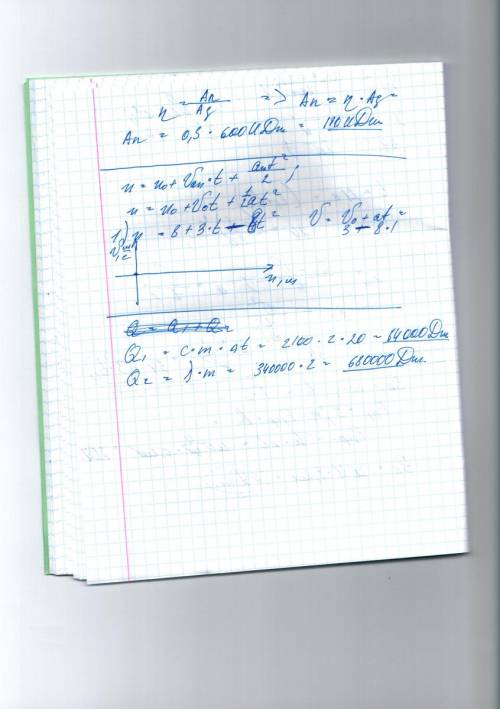 η = Aп/Aз => Aп = η · Aз =
Aп = 0,3 · 600 кДж = 180 кДж
x = x₀ + V₀ₓ · t + aₓt²/2 ;
x = x₀ + V₀t + ½at²
1) x = 8 + 3 · t - t² V = V₀ + at =
3 - 8 · 1
x, м
Q = Q₁ + Q₂
Q₁ = c · m · Δt = 2100 · 2 · 20 = 84000 Дж
Q₂ = λ · m = 340000 · 2 = 680000 Дж